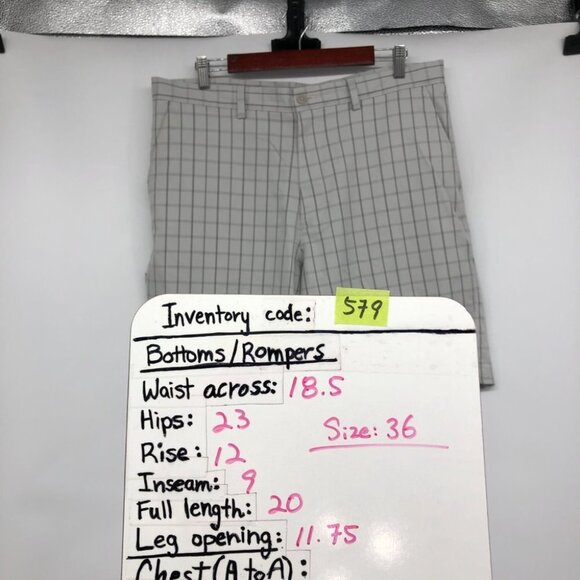 Inventory code: 579
Bottoms/Rompers
Waist across: 18.5
Hips: 23
Size: 36
Rise: 12
Inseam: 9
Full length: 20
Leg opening: 11.75
Chest (A to A):